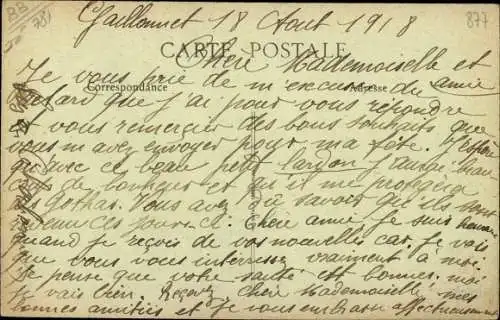 Gaillonnet 18 Aout 1918
877
CARTE POSTALE
Chère Mademoiselle et
amie
Correspondance
Adresse
Je vous prie de m'excuser du
retard que j'ai pour vous répondre
et vous remercier des bons souhaits que
vous m'avez envoyer pour ma fête. J'espère
qu'avec ce beau petit lardon j'aurai beau
de bonheur et qu'il me protégera
des gothas. Vous avez dû savoir qu'ils sont
revenu ces jours-ci. Chère amie je suis heureuse
quand je reçois de vos nouvelles car je vois
que vous vous intéressez vraiment à moi.
Je pense que votre santé est bonne. moi
je vais bien. Recevez Chère Mademoiselle mes
bonnes amitiés et je vous embrasse affectueusement